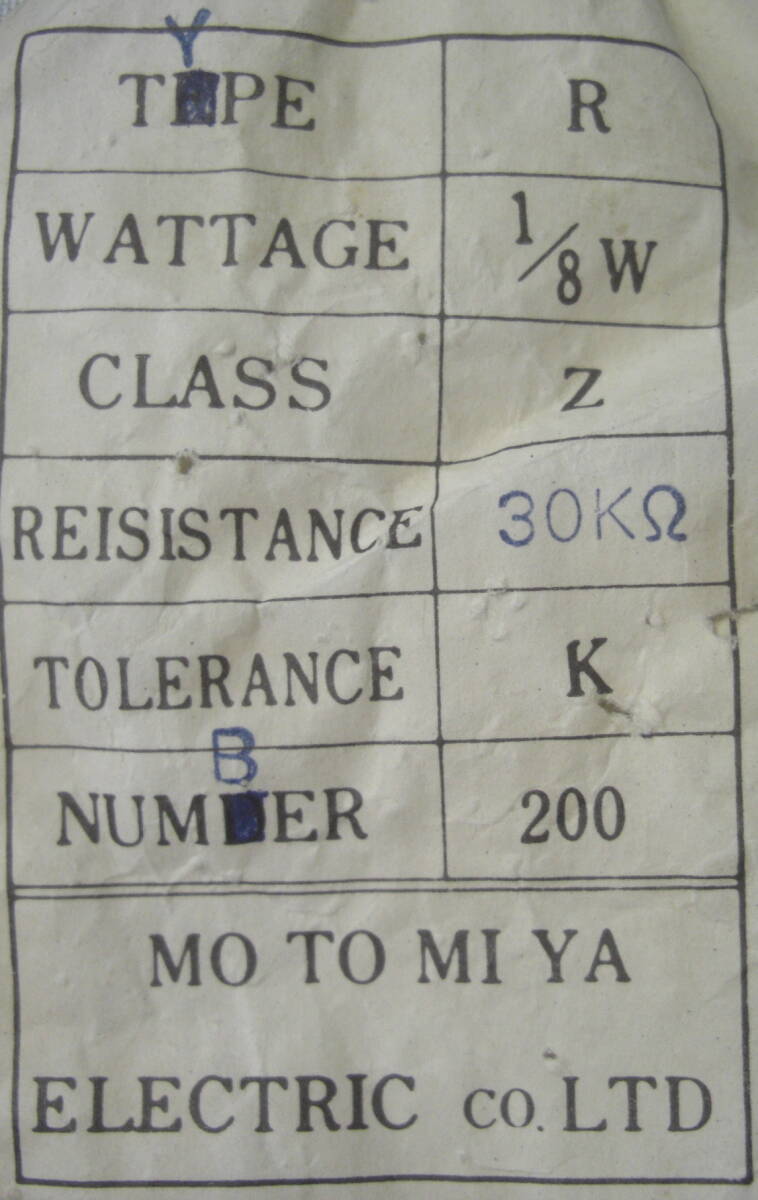 TYPE R
WATTAGE 1/8 W
CLASS Z
REISISTANCE 30KΩ
TOLERANCE K
NUMBER 200
MO TO MI YA
ELECTRIC CO. LTD